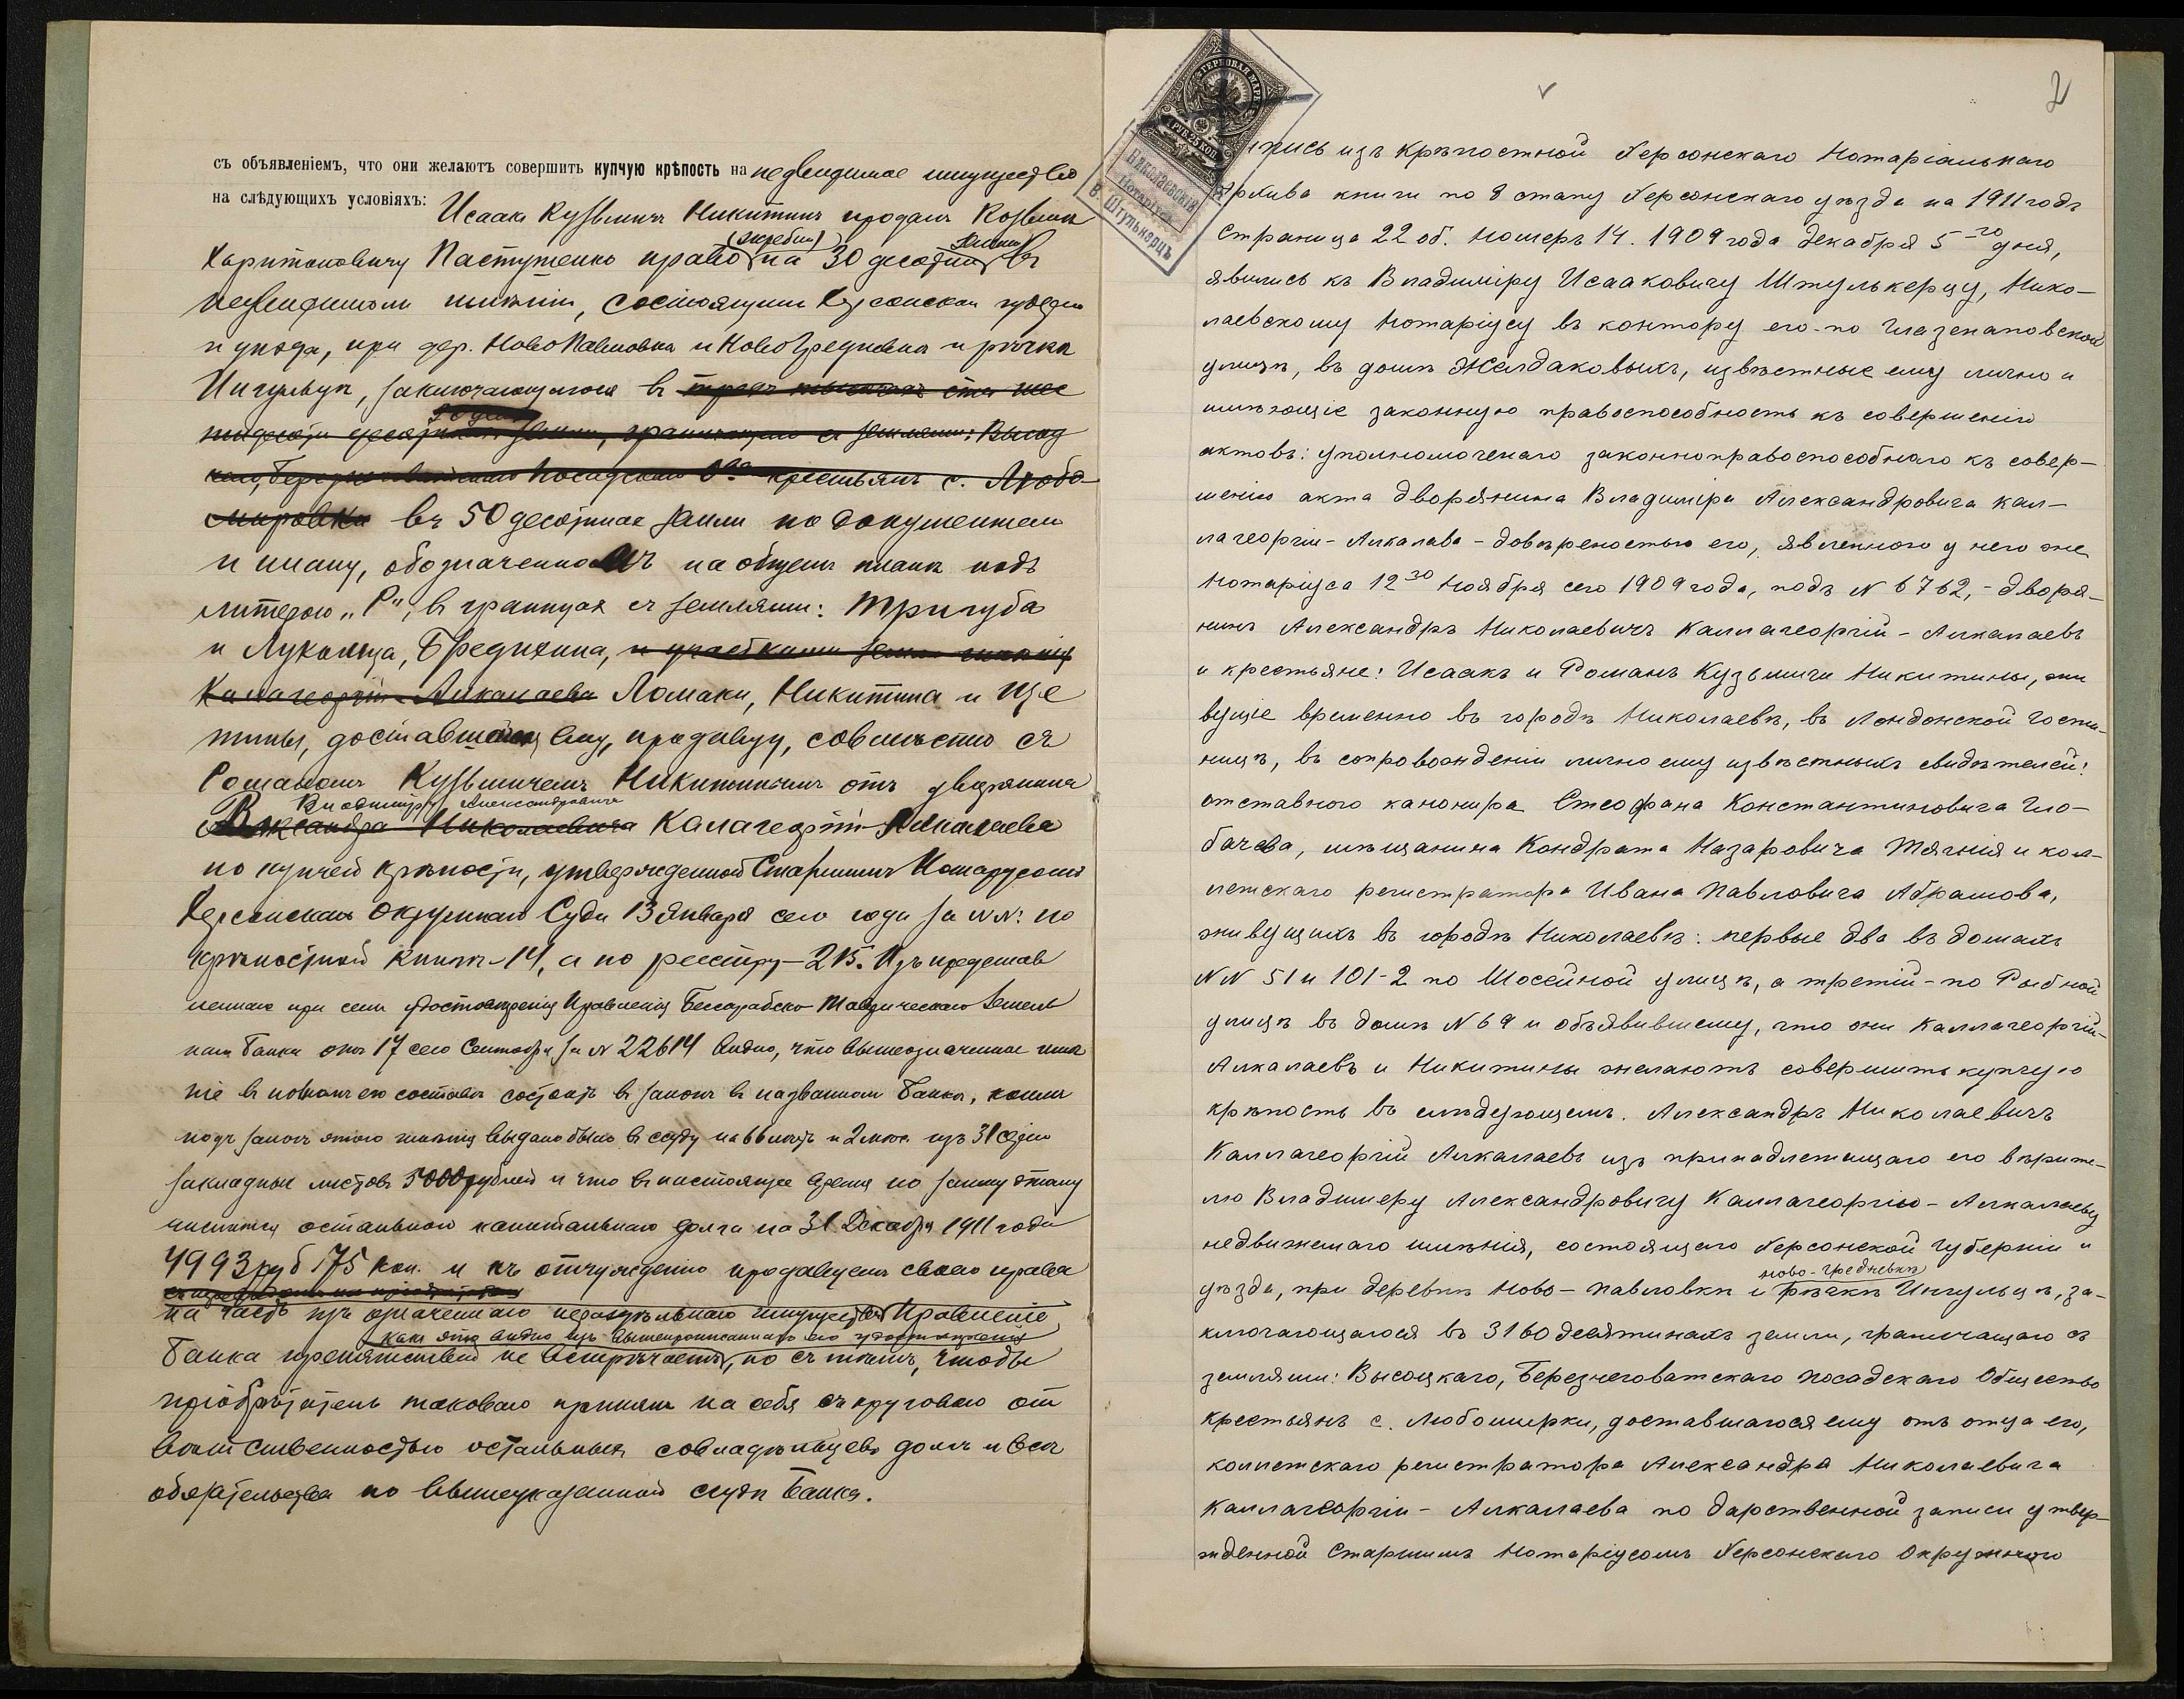 съ объявленіемъ, что они желаютъ совершить купчую крѣпость на недвидимое имущество
на слѣдующихъ условіяхъ:
Исаакъ Кузьмичъ Никитинъ продалъ Козьмѣ
(жребій) земли
Харитоновичу Пастушенко право на 30 десятинъ въ
недвидимомъ имѣніи, состоящемъ Херсонской губерніи
и уѣзда, при дер. НовоПавловка и НовоГредневка и рѣчкѣ
Ингульцѣ, заключающагося въ трехъ тысячахъ ста шес
тидесяти десятинахъ земли, граничащаго съ землями: Высоц
каго, Березнеговатскаго Посадскаго О-ва крестьянъ с. Любо-
мировки въ 50 десятинахъ земли по документамъ
и плану, обозначенномъ на общемъ планѣ подъ
литерою „Р", въ границахъ съ землями: Тригуба
и Лукьянца, Бредихина, и участками земли имѣнія
Калагеоргій-Алкалаева Ломаки, Никитина и Ще
тины, доставшейся ему, продавцу, совмѣстно съ
Романомъ Кузьмичемъ Никитинымъ отъ дворянина
Владиміра Александровича
Александра Николаевича Калагеоргій-Алкалаева
по купчей крѣпости, утвержденной Старшимъ Нотаріусомъ
Херсонскаго Окружнаго Суда 13 Января сего года за №№: по
крѣпостной книгѣ-14, а по реестру-215. Изъ представ
леннаго при семъ удостовѣренія Правленія Бессарабско-Таврическаго Земель
наго Банка отъ 17 сего Сентября за № 22614 видно, что вышеозначенное имѣ
ніе въ полномъ его составѣ состоитъ въ залогѣ въ названномъ Банкѣ, коимъ
подъ залогъ этого имѣнія выдано было въ ссуду на 66 лѣтъ и 2 мѣс. изъ 31 серіи
закладными листовъ 5000 рублей и что въ настоящее время по займу этому
числится остальнаго капитальнаго долга на 31 Декабря 1911 года
4993 руб 75 коп. и къ отчужденію продавцемъ своего права
на часть изъ означеннаго нераздѣльнаго имущества Правленіе
какъ это видно изъ вышепрописаннаго его удостовѣренія
Банка препятствій не встрѣчаетъ, но съ тѣмъ, чтобы
пріобрѣтатель таковаго принялъ на себя съ круговою от
вѣтственностью остальныхъ совладѣльцевъ долгъ и всѣ
обязательства по вышеуказанной ссудѣ Банка.
2
ГЕРБОВАЯ МАРКА
1 РУБ. 25 КОП.
Николаевскій
Нотаріусъ
В. Штулькерцъ
пись изъ крѣпостной Херсонскаго Нотаріальнаго
Архива книги по 8 стану Херсонскаго уѣзда на 1911 годъ
страница 22 об. номеръ 14. 1909 года декабря 5-го дня,
явились къ Владиміру Исааковичу Штулькерцу, Нико-
лаевскому Нотаріусу въ контору его-по Глазенаповской
улицѣ, въ домѣ Желдаковыхъ, извѣстные ему лично и
имѣющіе законную правоспособность къ совершенію
актовъ: уполномоченаго законноправоспособнаго къ совер-
шенію акта дворянина Владиміра Александровича Кал-
лагеоргіи-Алкалава-довѣреностью его, явленною у него же
Нотаріуса 12 30 Ноября сего 1909 года, подъ № 6762,-дворя-
нинъ Александръ Николаевичъ Каллагеоргій-Алкалаевъ
и крестьяне: Исаакъ и Романъ Кузьмичи Никитины, жи
вущіе временно въ городѣ Николаевѣ, въ Лондонской гости-
ницѣ, въ сопровожденіи лично ему извѣстныхъ свидѣтелей:
отставного канонира Стеофана Константиновича Гло-
бачева, мѣщанина Кондрата Назаровича Тягнія и кол-
летскаго регистратора Ивана Павловича Абрамова,
живущихъ въ городѣ Николаевѣ: первые два въ домахъ
№№ 51 и 101-2 по Шосейной улицѣ, а третій-по Рыбной
улицѣ въ домѣ № 69 и объявившему, что они Каллагеоргій-
Алкалаевъ и Никитины желаютъ совершить купчую
крѣпость въ слѣдующемъ. Александръ Николаевичъ
Каллагеоргій Алкалаевъ изъ принадлежащаго его вѣрите-
лю Владимеру Александровичу Каллагеоргію-Алкалаеву
недвижемаго имѣнія, состоящаго Херсонской Губерніи и
ново-гредневкѣ
уѣзда, при деревнѣ Ново-Павловки и рѣчкѣ Ингульцѣ, за-
ключающагося въ 3160 десятинахъ земли, граничащаго съ
землями: Высоцкаго, Березнеговатскаго посадскаго Общество
крестьянъ с. Любомирки, доставшагося ему отъ отца его,
коллетскаго регистратора Александра Николаевича
Каллагеоргіи-Алкалаева по дарственной записи утвер-
жденной Старшимъ Нотаріусомъ Херсонскаго Окружного